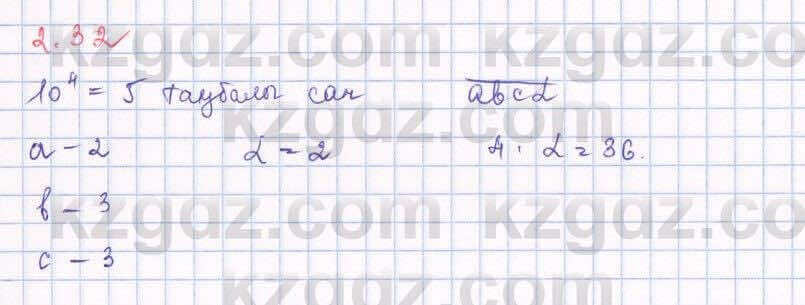 2.32
10⁴ = 5 таңбалы сан abcd
a - 2 d = 2 4 · d = 36.
b - 3
c - 3
kzgdz.com kzgdz.com
kzgdz.com
kzgdz.com kzgdz.com
kzgdz.com